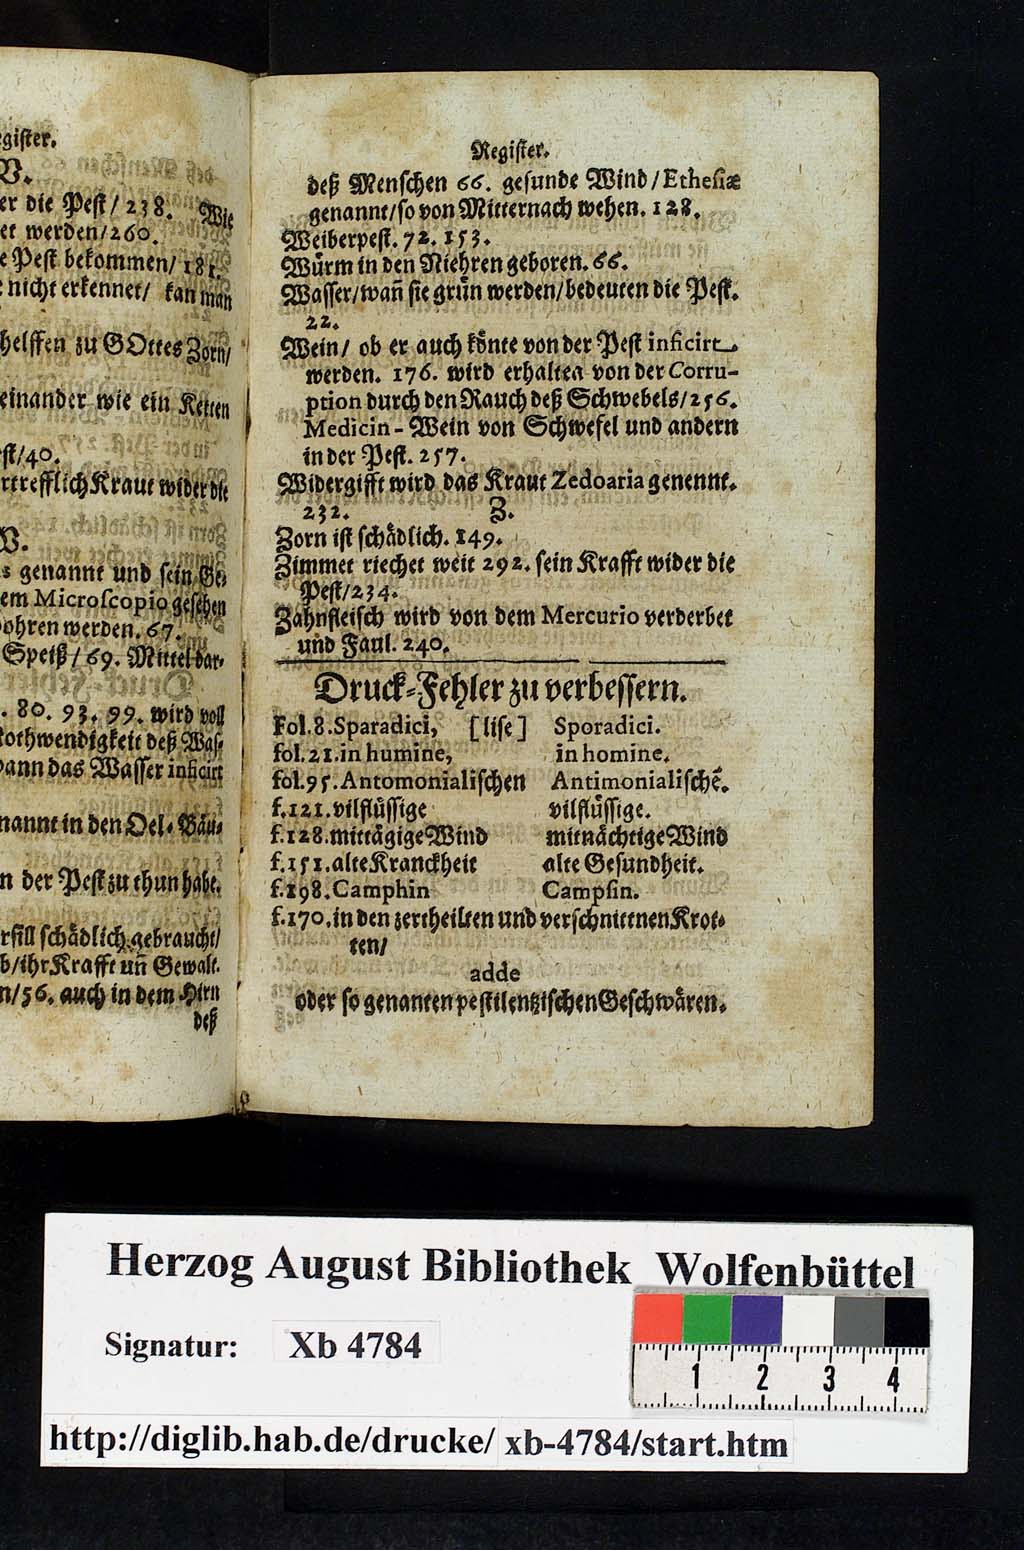 egister.
V.
er die Pest/ 238. Wie
et werden/260.
e Pest bekommen/ 181.
nicht erkennet/ kan man
helffen zu GOttes Zorn/
einander wie ein Ketten
st/40.
rtrefflich Kraut wider die
W.
s genannt und sein Ge⸗
em Microſcopio gesehen
ohren werden. 67.
Speiß/69. Mittel dar⸗
. 80. 93. 99. wird voll
othwendigkeit deß Was⸗
ann das Wasser inficirt
nannt in den Oel⸗Bäu⸗
n der Pest zu thun habe.
rsill schädlich gebraucht/
b/ihr Krafft uñ Gewalt.
n/56. auch in dem Hirn
deß
Register.
deß Menschen 66. gesunde Wind/Etheſiæ
genannt/so von Mitternach wehen. 128.
Weiberpest. 72. 153.
Würm in den Niehren geboren. 66.
Wasser/wañ sie grün werden/bedeuten die Pest.
22.
Wein/ ob er auch könte von der Pest inficirt
werden. 176. wird erhaltea von der Corru-
ption durch den Rauch deß Schwebels/256.
Medicin - Wein von Schwefel und andern
in der Pest. 257.
Widergifft wird das Kraut Zedoaria genennt.
232.
Z.
Zorn ist schädlich. 149.
Zimmet riechet weit 292. sein Krafft wider die
Pest/234.
Zahnfleisch wird von dem Mercurio verderbet
und Faul. 240.
Druck⸗Fehler zu verbessern.
Fol. 8. Sparadici, [lise] Sporadici.
fol. 21. in humine, in homine.
fol. 95. Antomonialischen Antimonialischẽ.
f. 121. vilflüssige vilflüssige.
f. 128. mittägige Wind mitnächtige Wind
f. 151. alte Kranckheit alte Gesundheit.
f. 198. Camphin Campſin.
f. 170. in den zertheilten und verschnittnen Krot⸗
ten/
adde
oder so genanten pestilentzischen Geschwären.
Herzog August Bibliothek Wolfenbüttel
Signatur: Xb 4784
1 2 3 4
http://diglib.hab.de/drucke/ xb-4784/start.htm